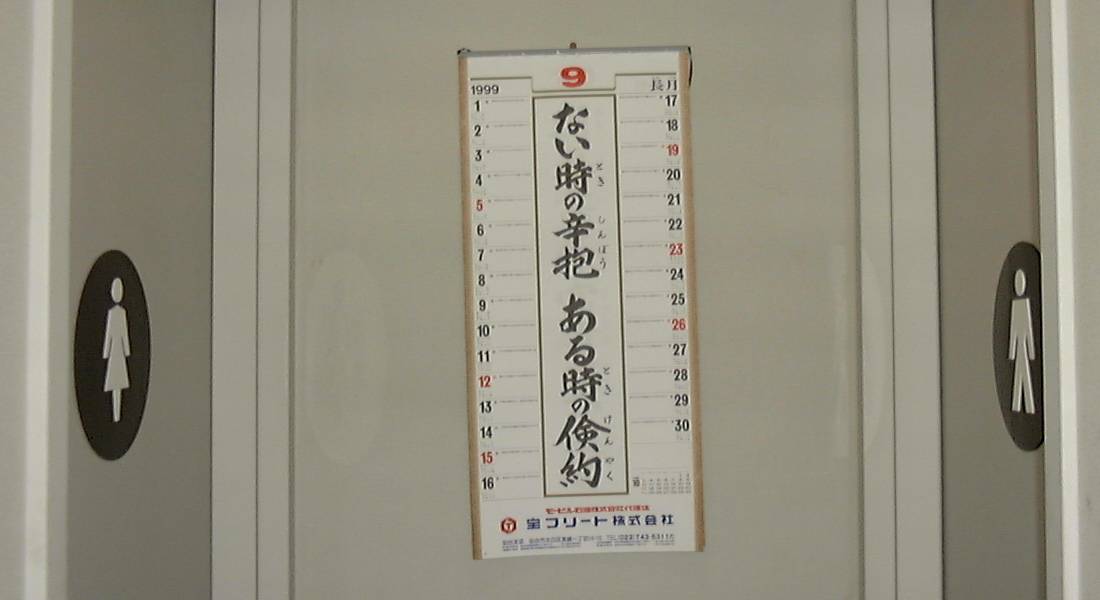 9
1999
長月
1
2
3
4
5
6
7
8
9
10
11
12
13
14
15
16
ない時の辛抱 ある時の倹約
とき
しんぼう
とき
けんやく
17
18
19
20
21
22
23
24
25
26
27
28
29
30
10
モービル石油株式会社代理店
宝フリート株式会社